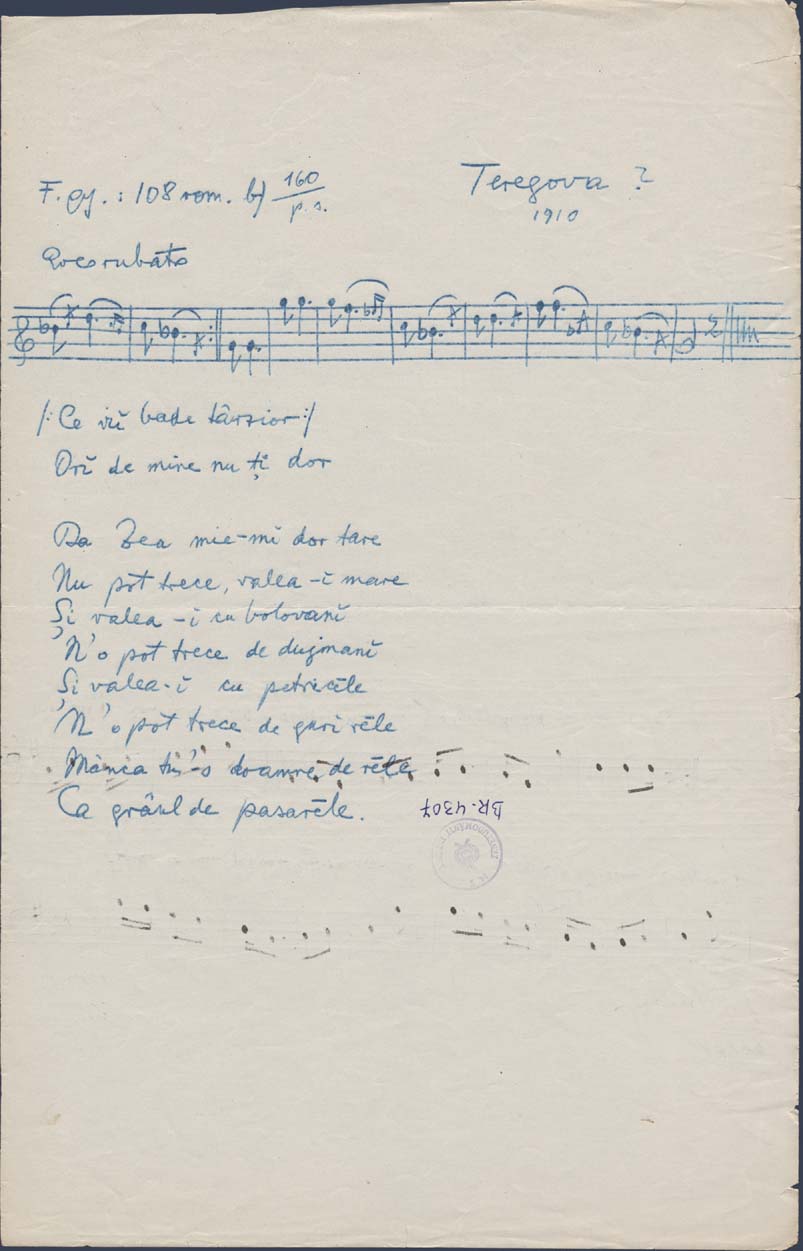 F. gy.: 108 rom. b) 160/p. s.
Teregova ?
1910
Poco rubato
/: Ce viĭ bade târzior :/
Orĭ de mine nu ț̆i dor
Ba zea mie-mĭ dor tare
Nu pot trece, valea-ĭ mare
Și valea-ĭ cu bolovanĭ
N'o pot trece de dușmanĭ
Și valea-ĭ cu petricele
N'o pot trece de guri rele
Mânca tu'-s doamne, de rele
Ca grâul de pasarele.
BR-4307